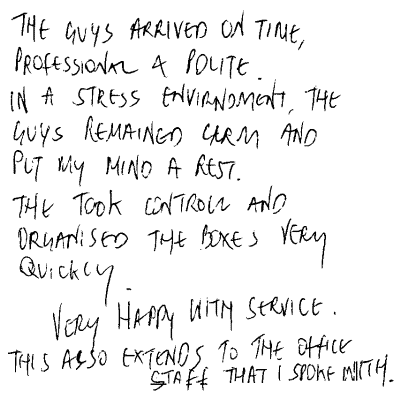 THE GUYS ARRIVED ON TIME,
PROFESSIONAL & POLITE.
IN A STRESS ENVIRNOMENT, THE
GUYS REMAINED CALM AND
PUT MY MIND A REST.
THE TOOK CONTROLL AND
ORGANISED THE BOXES VERY
QUICKLY.
VERY HAPPY WITH SERVICE.
THIS ALSO EXTENDS TO THE OFFICE
STAFF THAT I SPOKE WITH.